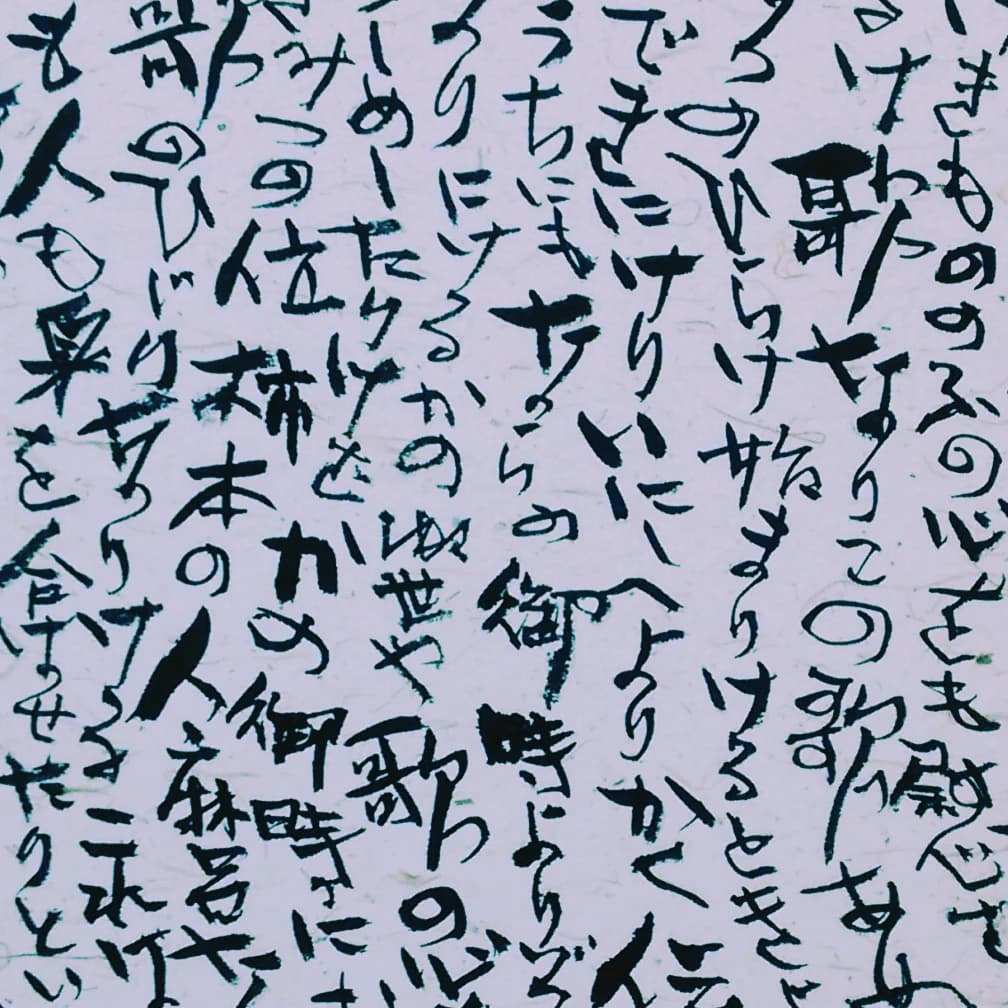 きもののふの心をも慰む
るは歌なりこの歌あめ
のひらけ始まりけるとき
できにけりいにしへよりかく伝
うちにもならの御時よりぞ
りにけるかの御世や歌の心
しめしたりけむかの御時に
みつの位柿本の人麻呂な
歌のひじりなりけるこれは
も人も身を合はせたりとい